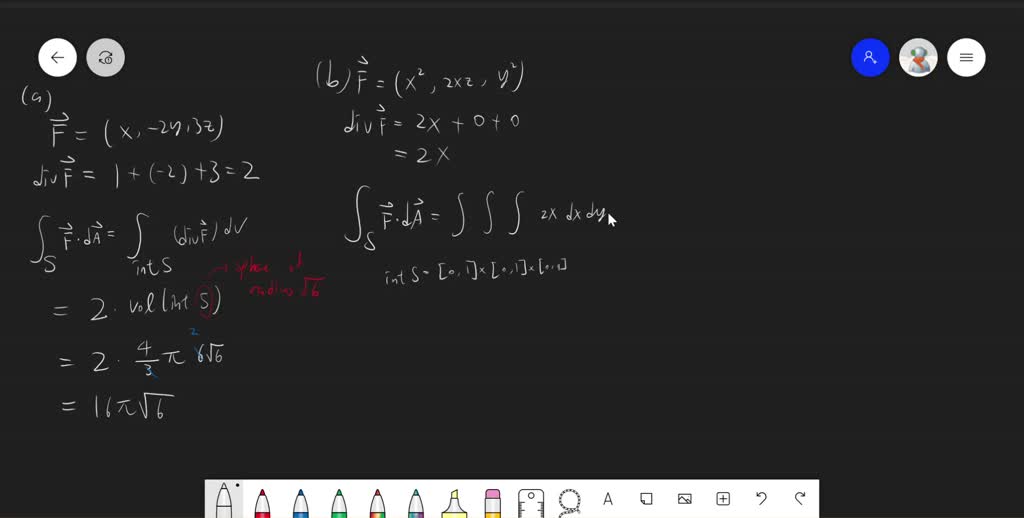 (a)
F⃗ = (x, -2y, 3z)
div F⃗ = 1 + (-2) + 3 = 2
∫_S F⃗ · dA⃗ = ∫_{int S} (div F⃗) dV
→ sphere of
radius √6
= 2 · vol(int S)
2
= 2 · 4/3 π 6√6
= 16π√6
(b) F⃗ = (x², 2xz, y²)
div F⃗ = 2x + 0 + 0
= 2x
∫_S F⃗ · dA⃗ = ∫ ∫ ∫ 2x dx dy
int S = [0,1]×[0,1]×[0,1]
A